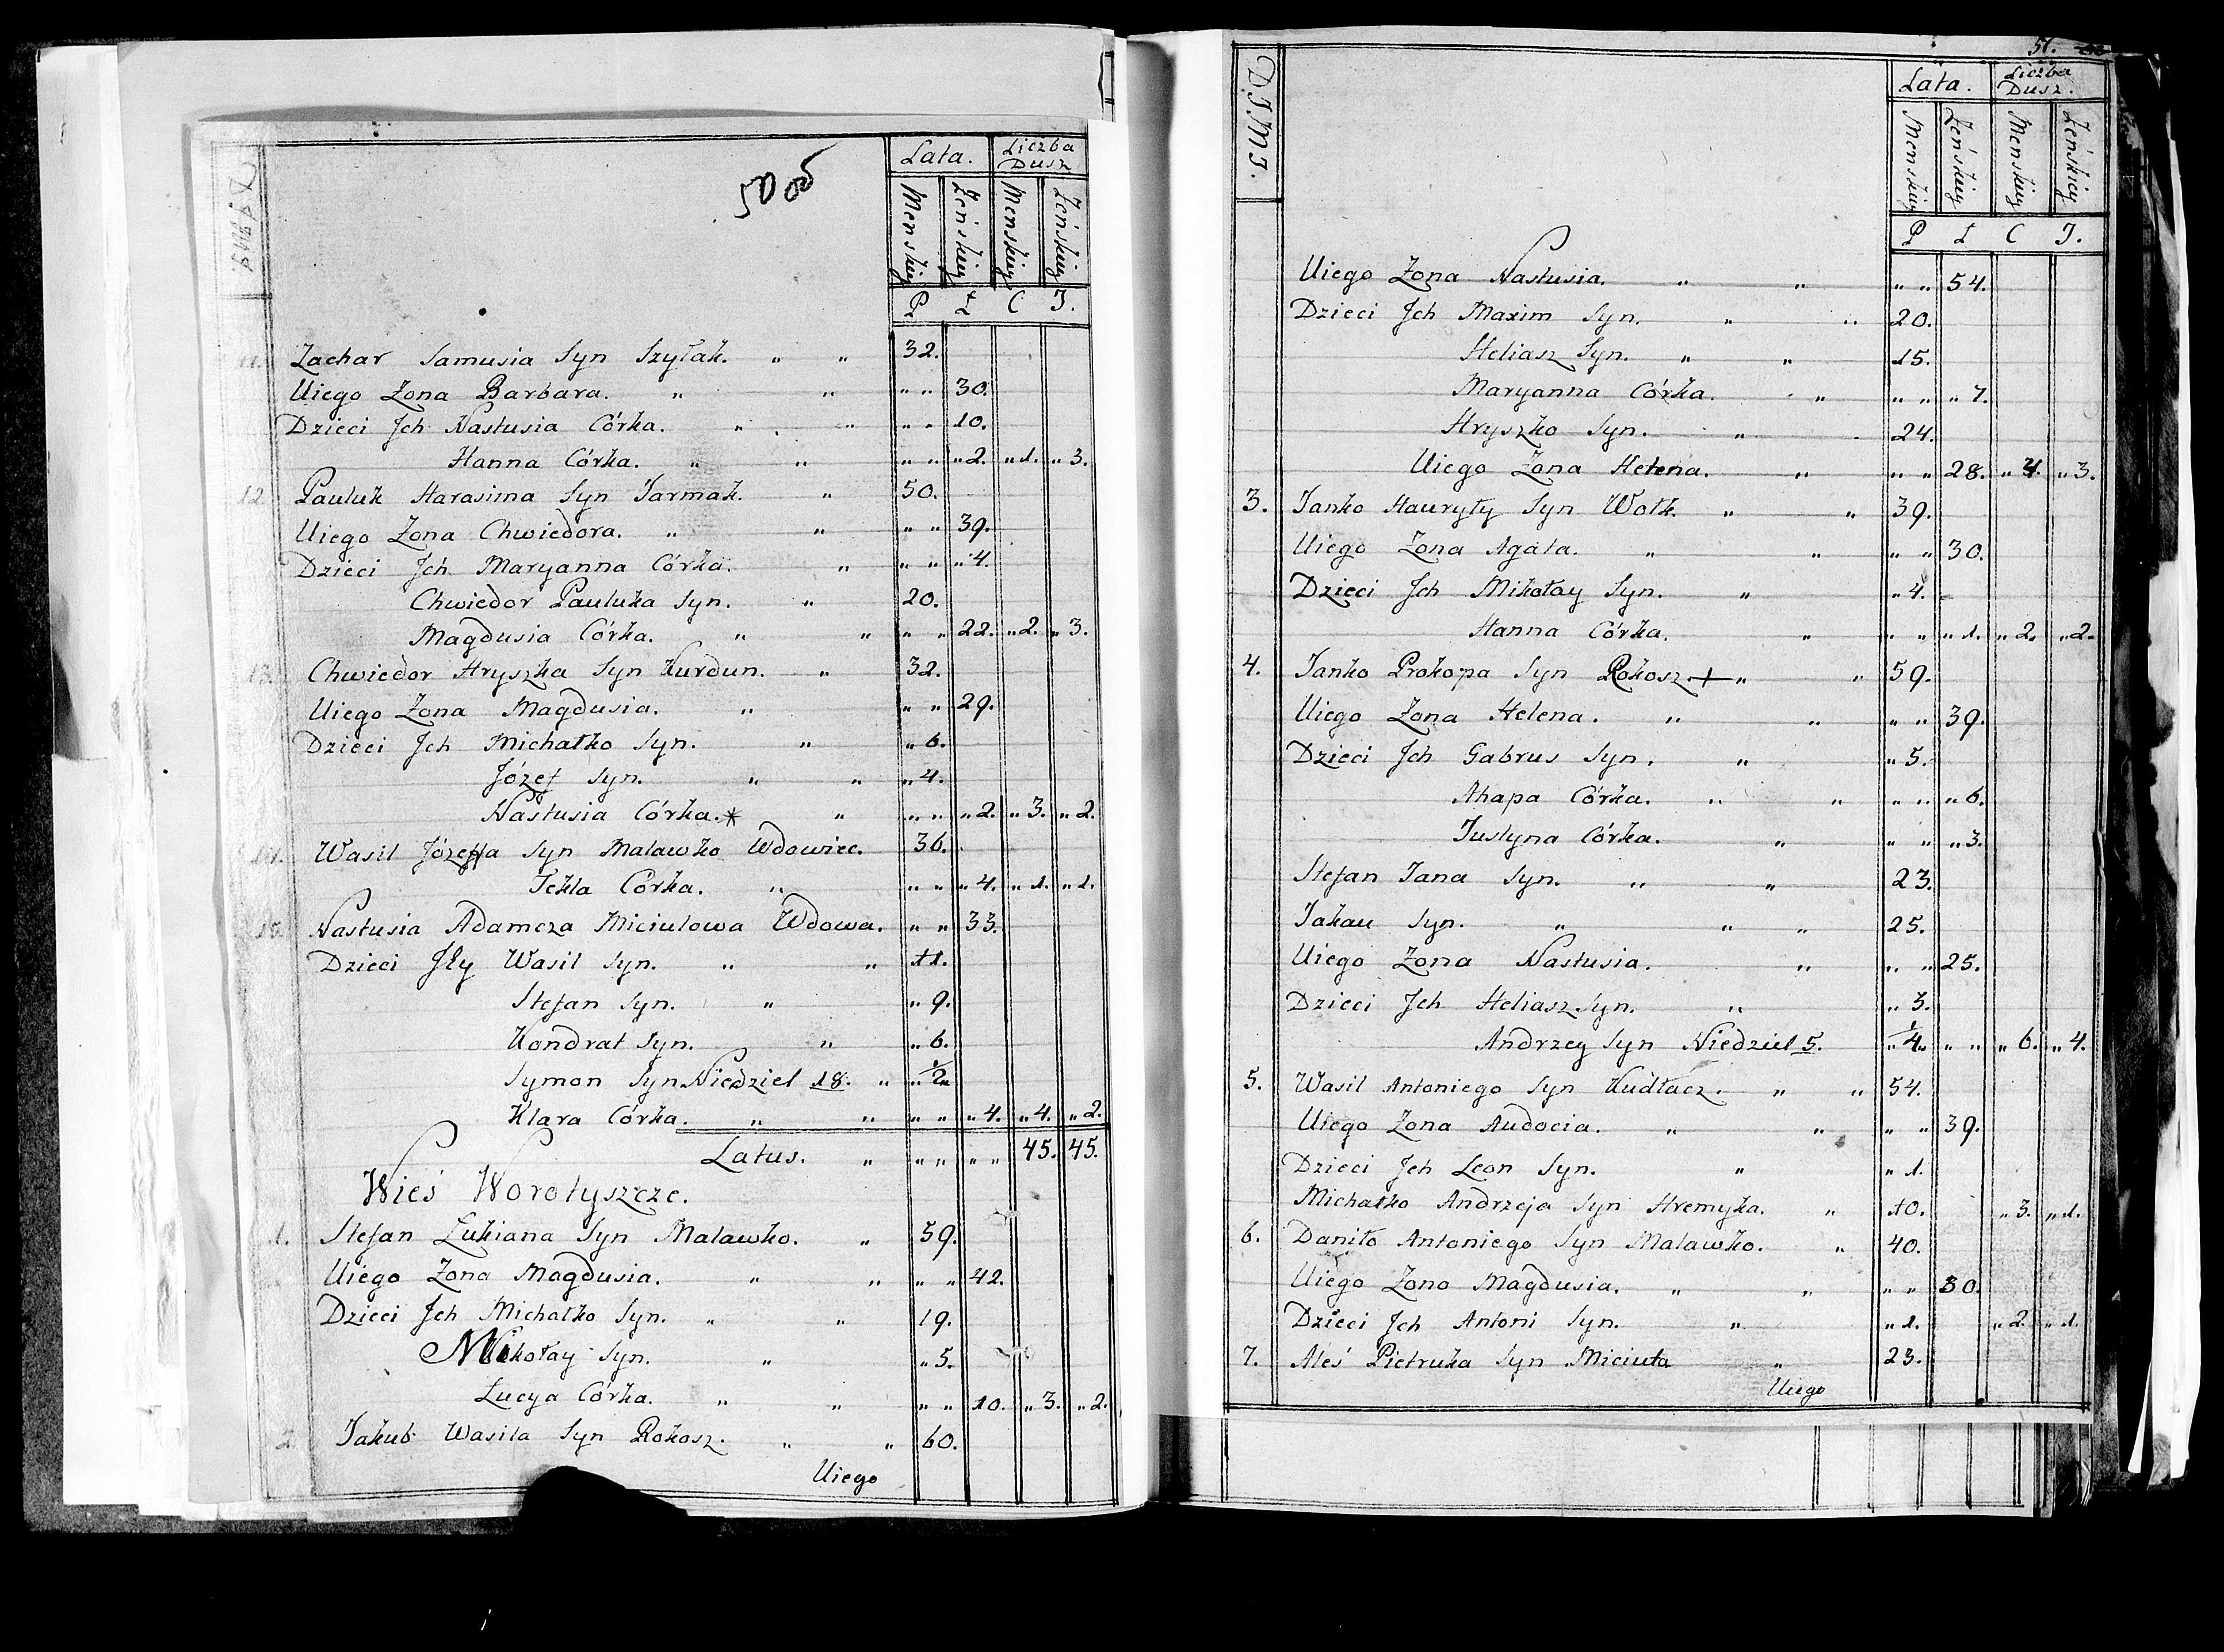 50 об
Lata. Liczba Dusz
Menskiey Żeńskiey Menskiey Żeńskiey
P Ł C J.
11. Zachar Samusia Syn Szyłak. " " 32.
Uiego Zona Barbara. " " " " 30.
Dzieci Jch Nastusia Córka. " " " " 10.
Hanna Córka. " " " " " 2. " 1. " 3.
12 Pauluk Harasima Syn Jarmak. " 50.
Uiego Zona Chwiedora. " " " " 39.
Dzieci Jch Maryanna Córka. " " " " 4.
Chwiedor Pauluka Syn. " 20.
Magdusia Córka. " " " " 22. " 2. " 3.
13. Chwiedor Hryszka Syn Kurdun. " 32.
Uiego Zona Magdusia. " " " 29.
Dzieci Jch Michałko Syn. " " 6.
Józef Syn. " " " 4.
Nastusia Córka.* " " " " 2. " 3. " 2.
14. Wasil Józefa Syn Malawko Wdowiec. 36.
Tekla Córka. " " " " 4. " 1. " 1.
15. Nastusia Adamcza Miciulowa Wdowa. " " 33.
Dzieci Jły Wasil Syn. " " 11.
Stefan Syn. " " 9.
Kondrat Syn. " " 6.
Symon Syn Niedziel 18. " " 1/2"
Klara Córka. " " " " " 4. " 4. " 2.
Latus. " " " " " 45. 45.
Wieś Worotyszcze.
1. Stefan Łukiana Syn Malawko. " 59.
Uiego Zona Magdusia. " " " " 42.
Dzieci Jch Michałko Syn. " " 19.
Mikołay Syn. " " 5.
Łucya Córka. " " " " 10. " 3. " 2.
2. Jakub Wasila Syn Rokosz. " " 60.
Uiego
D.J.M.J.
51.
Lata. Liczba Dusz.
Menskiey Żeńskiey Menskiey Żeńskiey
P Ł C J.
Uiego Zona Nastusia. " " " " 54.
Dzieci Jch Maxim Syn. " " 20.
Heliasz Syn. " " 15.
Maryanna Córka. " " " " 7.
Hryszko Syn. " 24.
Uiego Zona Helena. " " " 28. " 4. " 3.
3. Janko Hauryły Syn Wołk. " " 39.
Uiego Zona Agata. " " " " 30.
Dzieci Jch Mikołay Syn. " " 4.
Hanna Córka. " " " " 1. " 2. " 2.
4. Janko Prokopa Syn Rokosz + " " 59.
Uiego Zona Helena. " " " " 39.
Dzieci Jch Gabrus Syn. " " 5.
Ahapa Córka. " " " " " 6.
Justyna Córka. " " " " 3.
Stefan Jana Syn. " " 23.
Jakau Syn. " " " 25.
Uiego Zona Nastusia. " " " 25.
Dzieci Jch Heliasz Syn. " " 3.
Andrzey Syn Niedziel 5. " 1/4 " " " 6. " 4.
5. Wasil Antoniego Syn Kudłacz. " " 54.
Uiego Zona Audocia. " " " " 39.
Dzieci Jch Leon Syn. " " 1.
Michałko Andrzeja Syn Hremyka. " 10. " 3. " 1.
6. Daniło Antoniego Syn Malawko. " 40.
Uiego Zona Magdusia. " " " " 30.
Dzieci Jch Antoni Syn. " " 1. " 2. " 1.
7. Aleś Pietruka Syn Miciuła " 23.
Uiego